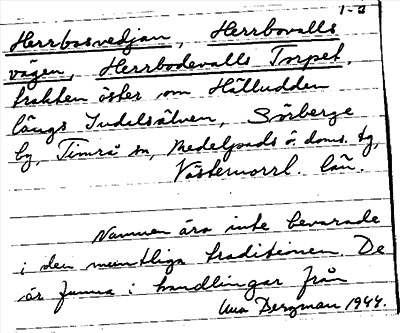 1-2
Herrbosvedjan, Herrbovalls
vägen, Herrbodevalls Torpet,
trakten öster om Hälludden
längs Indalsälven, Sörberge
by, Timrå sn, Medelpads ö. doms. tg,
Västernorrl. län.
Namnen äro inte bevarade
i den muntliga traditionen. De
är funna i handlingar från
Bergman 1944.